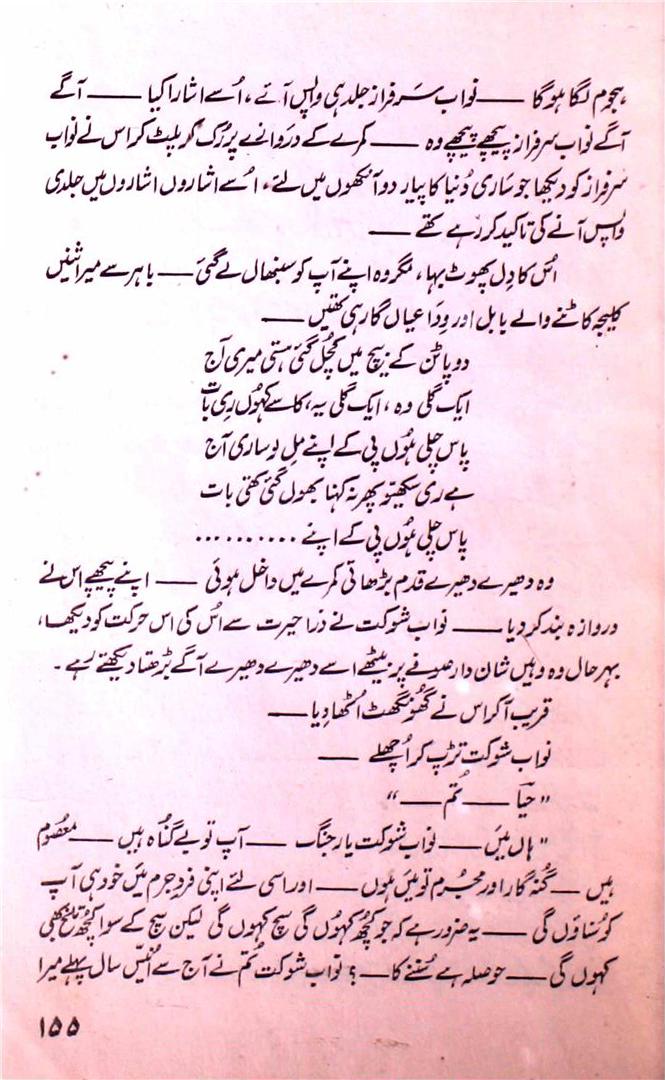 ہجوم لگا ہوگا —— نواب سرفراز جلد ہی واپس آئے، اُسے اشارا کیا —— آگے
آگے نواب سرفراز پیچھے پیچھے وہ —— کمرے کے دروازے پر رُک کر پلٹ کر اس نے نواب
سرفراز کو دیکھا جو ساری دُنیا کا پیار دو آنکھوں میں لئے، اُسے اشاروں اشاروں میں جلدی
واپس آنے کی تاکید کر رہے تھے ——
اُس کا دِل پھوٹ بہا، مگر وہ اپنے آپ کو سنبھال لے گئی —— باہر سے میراثنیں
کلیجہ کاٹنے والے بابل اور وداعیاں گا رہی تھیں ——
دو پاٹن کے بیچ میں کچُل گئی ہستی میری آج
ایک گلی وہ، ایک گلی یہ، کاسے کہوں ری بات
پاس چلی ہوں پی کے اپنے مل لو ساری آج
ہے ری سکھیتو پھر نہ کہنا بھول گئی تھی بات
پاس چلی ہوں پی کے اپنے ..........
وہ دھیرے دھیرے قدم بڑھاتی کمرے میں داخل ہوئی —— اپنے پیچھے اس نے
دروازہ بند کر دیا —— نواب شوکت نے ذرا حیرت سے اُس کی اس حرکت کو دیکھا،
بہرحال وہ وہیں شان دار صوفے پر بیٹھے اسے دھیرے دھیرے آگے بڑھتا دیکھتے رہے۔
قریب آ کر اس نے گھونگھٹ اُٹھا دیا ——
نواب شوکت تڑپ کر اُچھلے ——
"حیا —— تُم ——"
"ہاں میں —— نواب شوکت یار جنگ —— آپ تو بے گناہ ہیں —— معصوم
ہیں —— گنہ گار اور مجرم تو میں ہوں —— اور اسی لئے اپنی فردِ جرم میں خود ہی آپ
کو سُناؤں گی —— یہ ضرور ہے کہ جو کچھ کہوں گی سچ کہوں گی لیکن سچ کے سوا کچھ تلخ بھی
کہوں گی —— حوصلہ ہے سُننے کا ——؟ نواب شوکت تُم نے آج سے اُنیّس سال پہلے میرا
۱۵۵